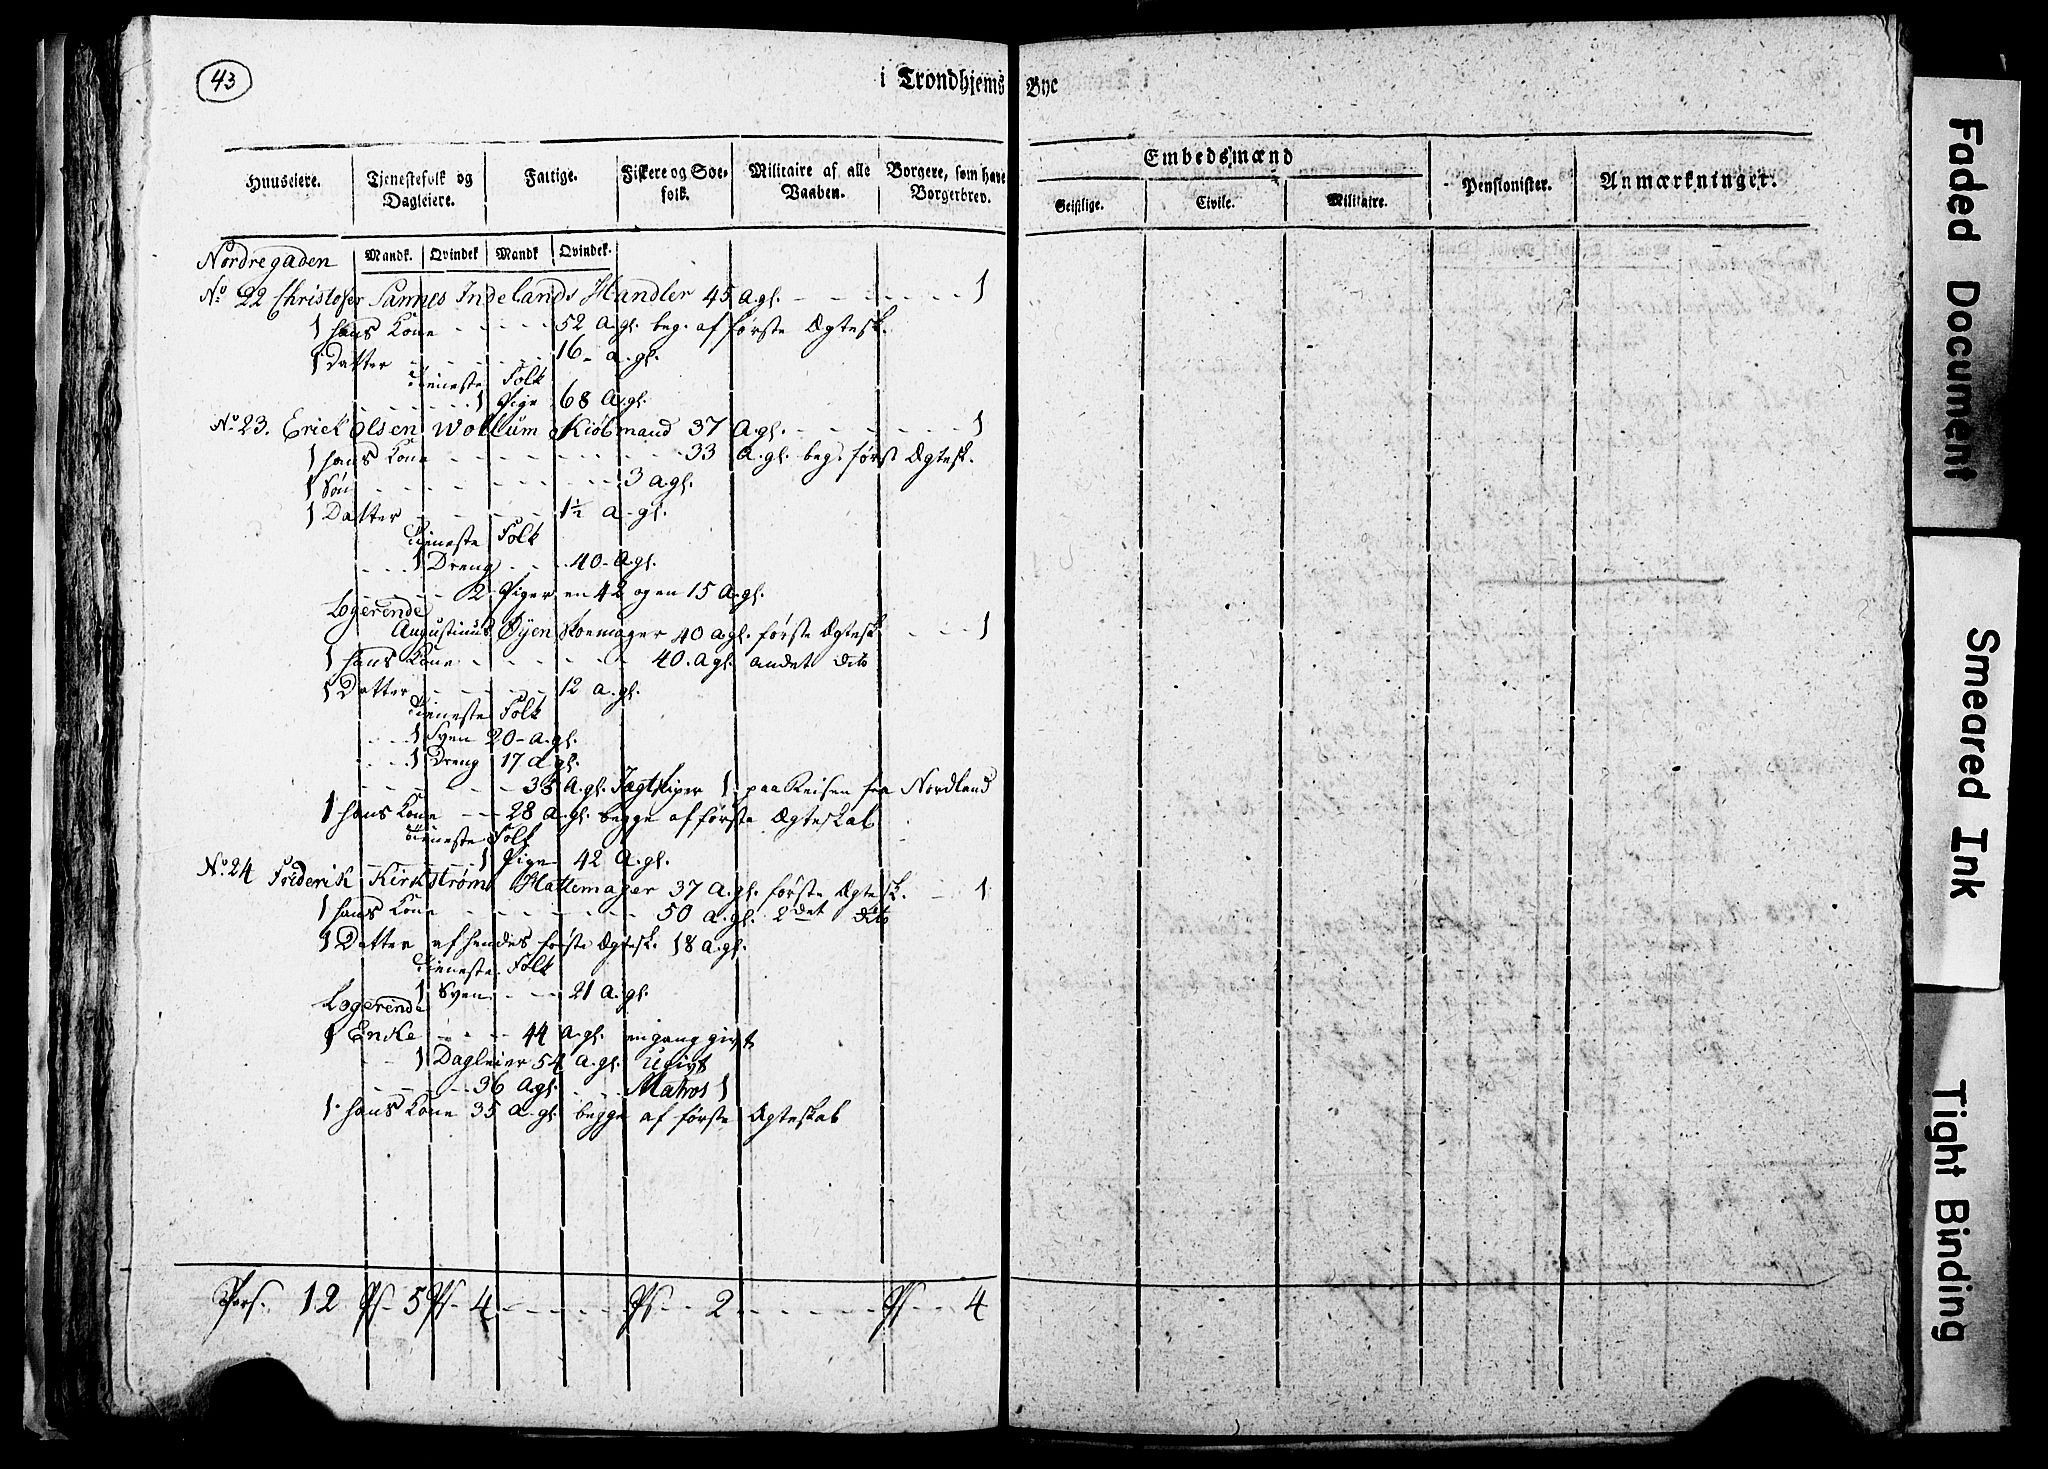 43
i Trondhjems Bye
Huuseiere. Tjenestefolk og Dagleiere. Fattige. Fiskere og Søefolk. Militaire af alle Vaaben. Borgere, som have Borgerbrev. Embedsmænd Pensionister. Anmærkninger.
Geistlige. Civile. Militaire.
Mandk. Qvindek Mandk Qvindek.
Nordregaden
No 22 Christofer Sannes Indelands Handler 45 A. gl. - - - - - - 1
1 hans Kone - - - - - 52 A. gl. beg. af første Ægtesk.
1 Datter - - - - - 16 - a. gl.
Tieneste Folk
- - - - - - 1 Pige 68 A. gl.
No. 23. Erick Olsen Wollum Kiøbmand 37 A. gl. - - - - - - 1
1 hans Kone - - - - - - - - 33 A. gl. beg. først Ægtesk.
1 Søn - - - - - - - - - 3 a gl.
1 Datter - - - - - - 1½ a - gl.
Tieneste Folk
- - - 1 Dreng - - - 40 - A. gl.
- - - - 2 Piger en 42 og en 15 A. gl.
Logerende
Augustinus Øyen Skoemager 40 a. gl. første Ægtesk. - - - 1
1 hans Kone - - - - - - 40. A gl. andet dito
1 Datter - - - - - 12 a. gl.
Tieneste Folk
- - - 1 Sven 20 - a. gl.
- - - 1 Dreng 17 a gl.
- - - - - - 33 A. gl. Jægtskiper 1 paa Reisen fra Nordland
1 hans Kone - - - 28 A. gl. begge af første Ægteskab
Tieneste Folk
- - - - - 1 Pige 42 A. gl.
No. 24 Friderik Kirkstrøm Hattemager 37 A. gl. første Ægtesk. - - 1
1 hans Kone - - - - - - - 50 a. gl. 2det dito
1 Datter af hendes første Ægtesk. 18 a. gl.
Tieneste Folk
1 Sven - - - 21 A. gl.
Logerende
1 Enke - - - 44 a. gl. en gang givt
- - 1 Dagleier 54 A. gl. Ugivt
- - - - - 36 A gl. - - Matros 1
1 hans Kone 35 A. gl. begge af første Ægteskab
Pers. 12 Ps - 5 Ps - 4 - - - - - Ps - - 2 - - - - - - Ps - - - 4
Faded Document
Smeared Ink
Tight Binding